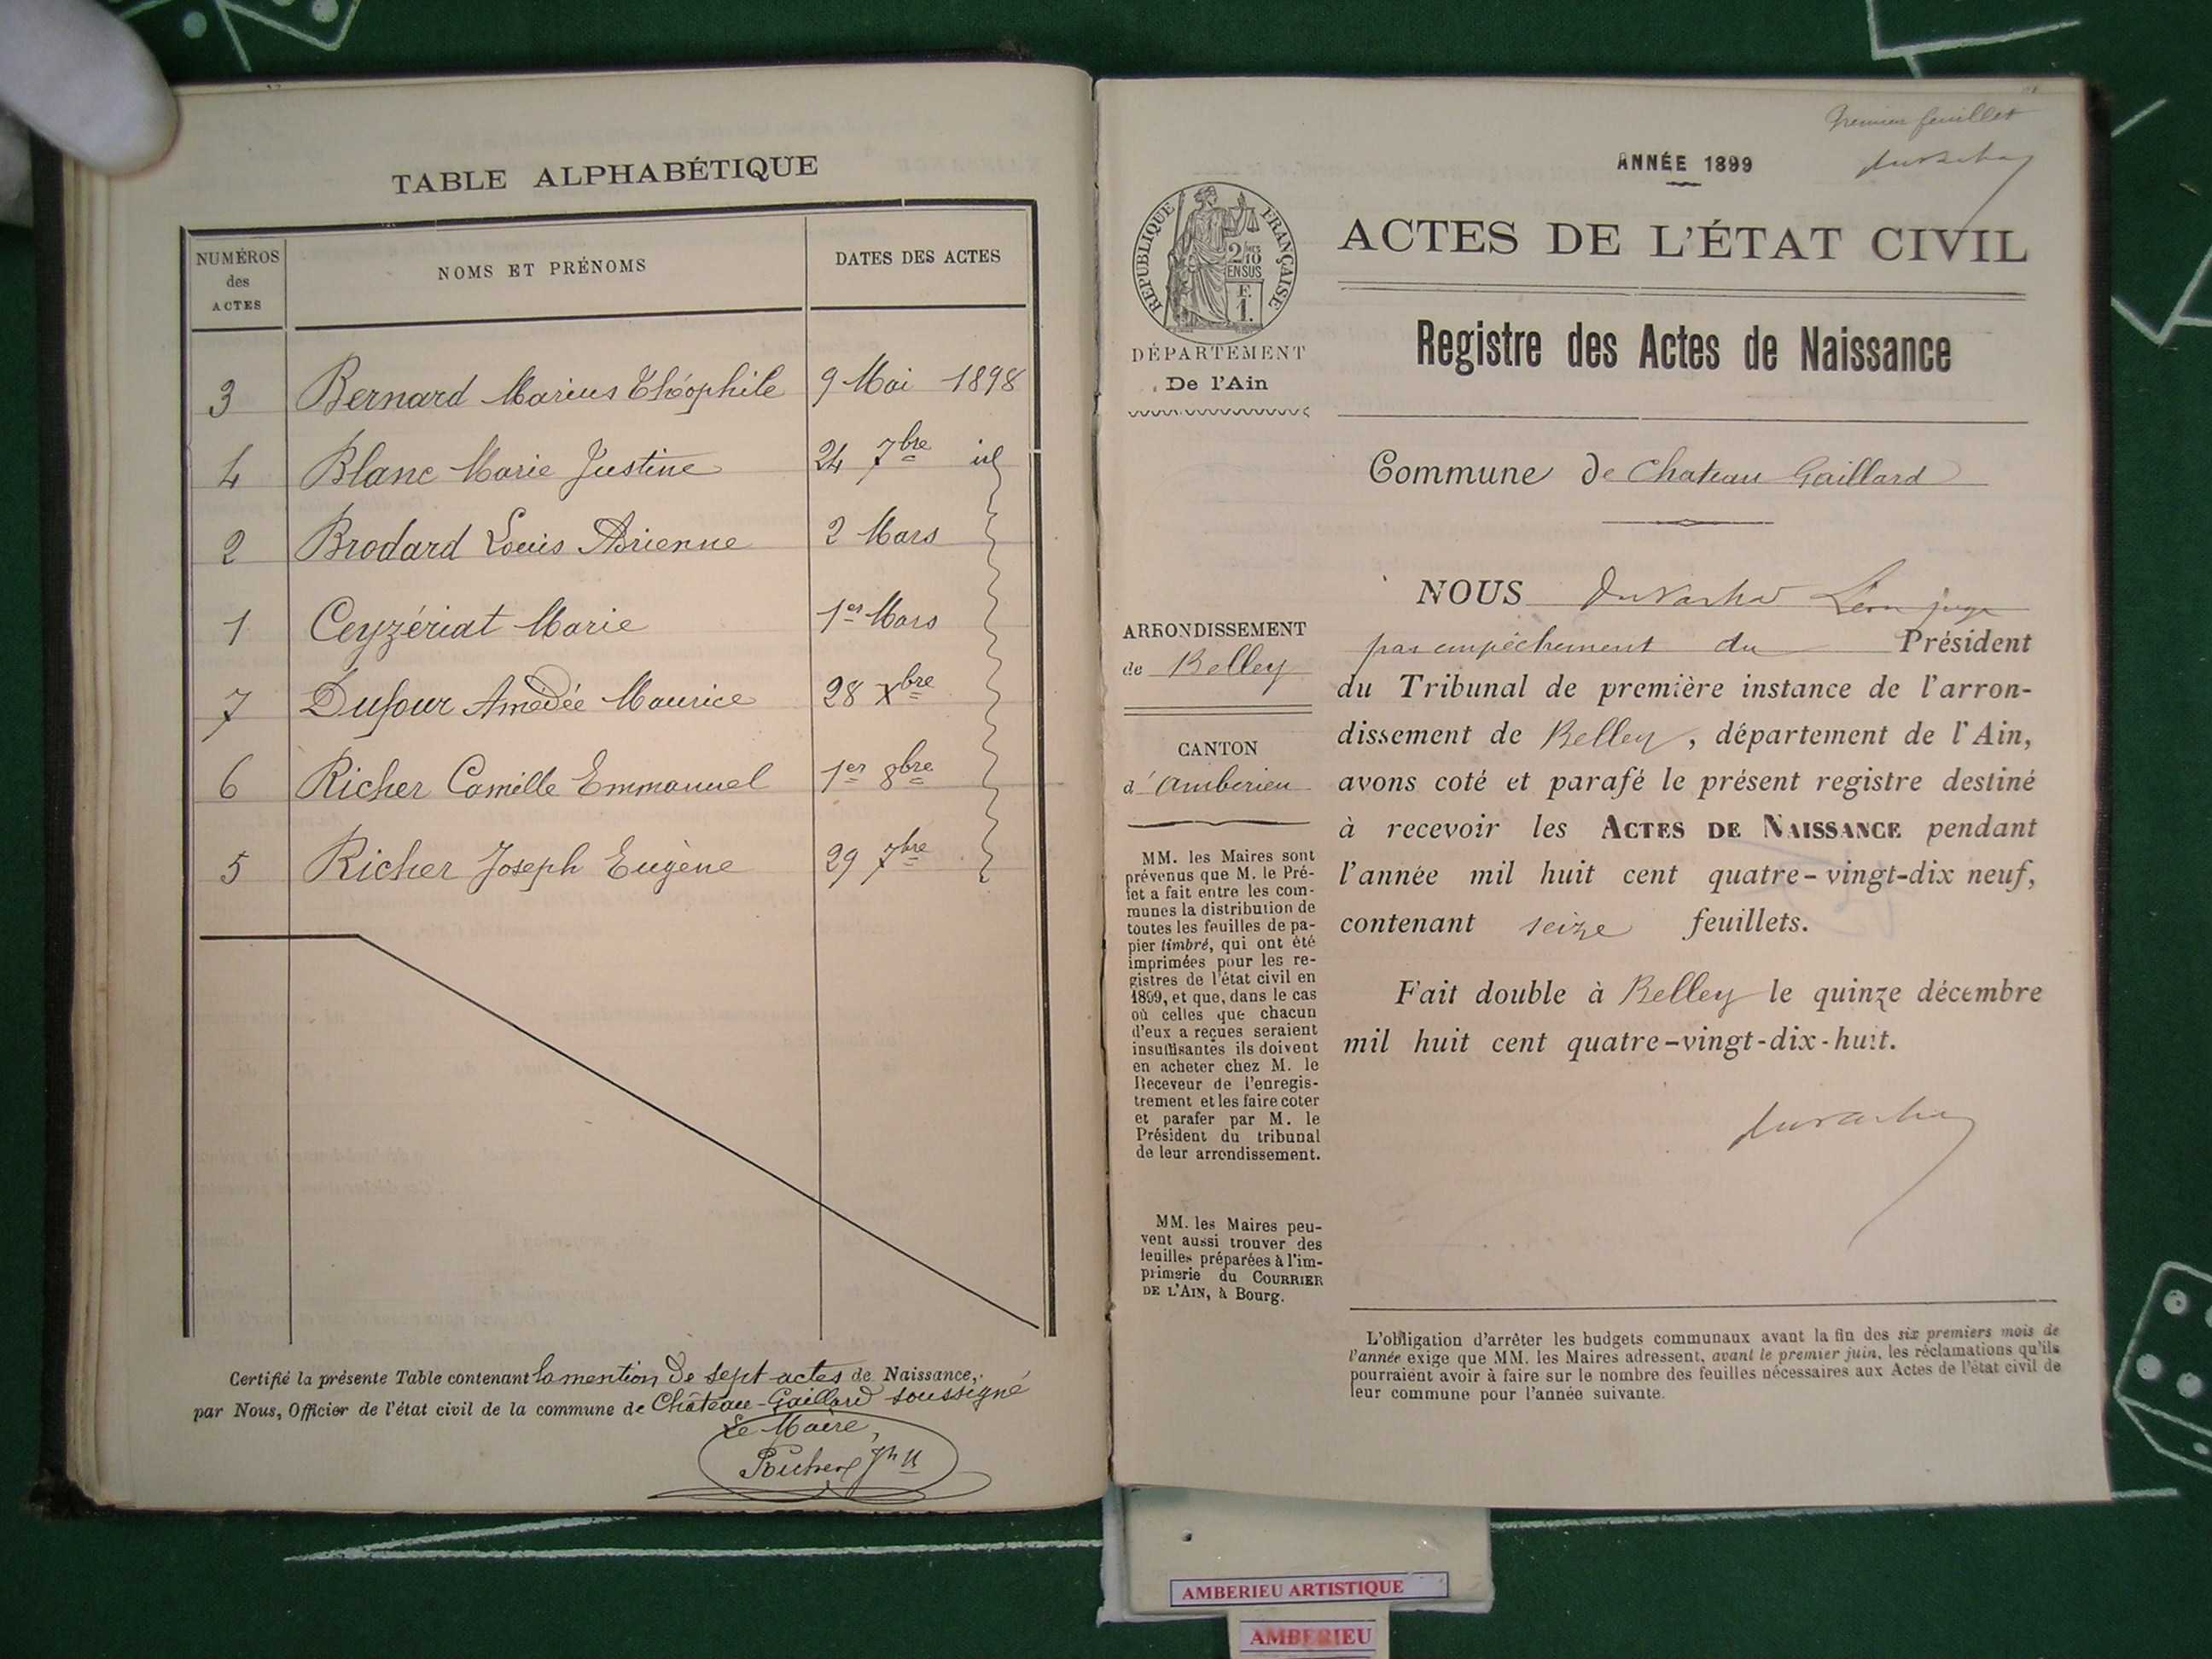 TABLE ALPHABÉTIQUE
NUMÉROS des ACTES
NOMS ET PRÉNOMS
DATES DES ACTES
3 Bernard Marius Théophile 9 Mai 1898
4 Blanc Marie Justine 24 7bre id
2 Brodard Louis Adrienne 2 Mars
1 Ceyzériat Marie 1er Mars
7 Dufour Amédée Maurice 28 Xbre
6 Richer Camille Emmanuel 1er 8bre
5 Richer Joseph Eugène 29 7bre
Certifié la présente Table contenant la mention de sept actes de Naissance,
par Nous, Officier de l'état civil de la commune de Château-Gaillard soussigné
Le Maire,
Premier feuillet
ANNÉE 1899
RÉPUBLIQUE FRANÇAISE
2/10
EN SUS
F.
1.
ACTES DE L'ÉTAT CIVIL
DÉPARTEMENT
De l'Ain
Registre des Actes de Naissance
Commune de Chateau Gaillard
ARRONDISSEMENT
de Belley
CANTON
d'Amberieu
MM. les Maires sont
prévenus que M. le Pré-
fet a fait entre les com-
munes la distribution de
toutes les feuilles de pa-
pier timbré, qui ont été
imprimées pour les re-
gistres de l'état civil en
1899, et que, dans le cas
où celles que chacun
d'eux a reçues seraient
insuffisantes ils doivent
en acheter chez M. le
Receveur de l'enregis-
trement et les faire coter
et parafer par M. le
Président du tribunal
de leur arrondissement.
MM. les Maires peu-
vent aussi trouver des
feuilles préparées à l'im-
primerie du COURRIER
DE L'AIN, à Bourg.
NOUS Léon juge
par empêchement du Président
du Tribunal de première instance de l'arron-
dissement de Belley, département de l'Ain,
avons coté et parafé le présent registre destiné
à recevoir les ACTES DE NAISSANCE pendant
l'année mil huit cent quatre-vingt-dix neuf,
contenant seize feuillets.
Fait double à Belley le quinze décembre
mil huit cent quatre-vingt-dix-huit.
L'obligation d'arrêter les budgets communaux avant la fin des six premiers mois de
l'année exige que MM. les Maires adressent, avant le premier juin, les réclamations qu'ils
pourraient avoir à faire sur le nombre des feuilles nécessaires aux Actes de l'état civil de
leur commune pour l'année suivante.
AMBERIEU ARTISTIQUE
AMBERIEU